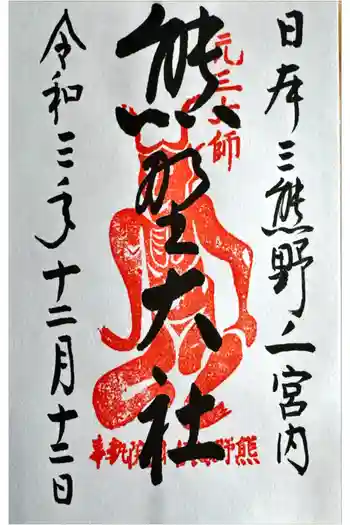 日本三熊野ノ一宮内
元三大師
熊野大社
令和三年十二月十二日